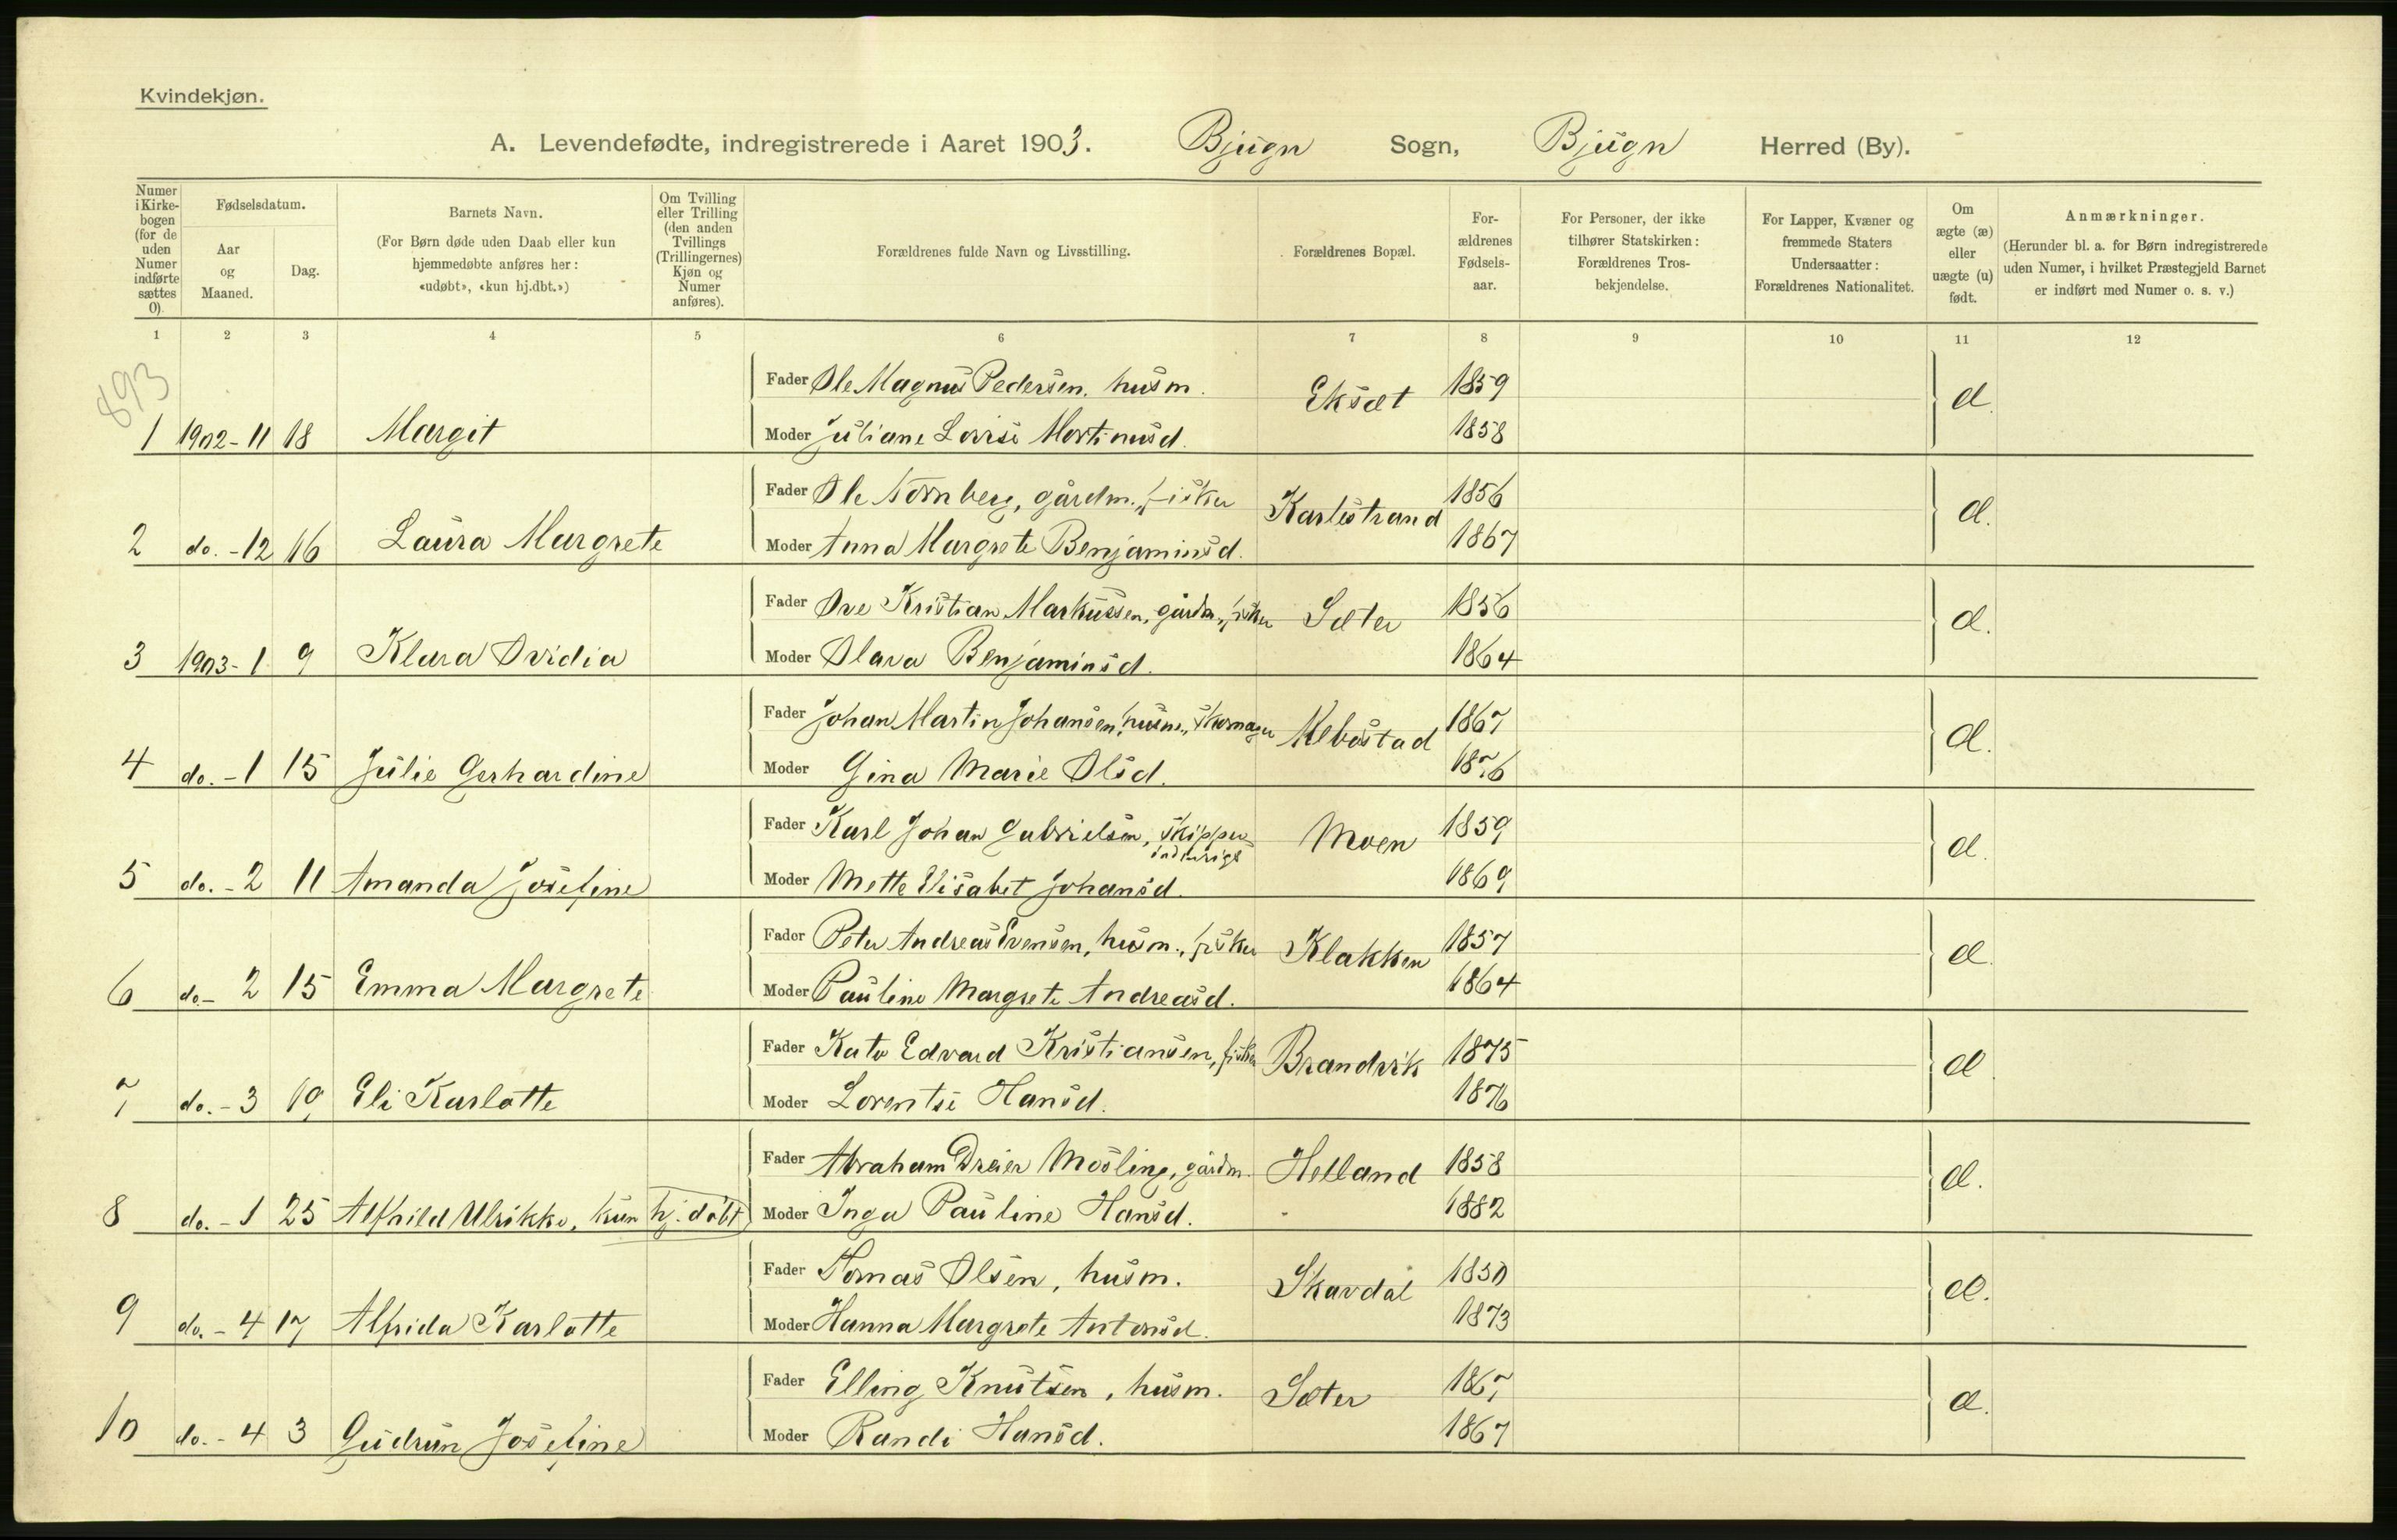 Kvindekjøn.
A. Levendefødte, indregistrerede i Aaret 1903. Bjugn Sogn, Bjugn Herred (By).
Numer i Kirkebogen (for de uden Numer indførte sættes 0).
Fødselsdatum.
Aar og Maaned.
Dag.
Barnets Navn.
(For Børn døde uden Daab eller kun hjemmedøbte anføres her: «udøbt», «kun hj.dbt.»)
Om Tvilling eller Trilling (den anden Tvillings (Trillingernes) Kjøn og Numer anføres).
Forældrenes fulde Navn og Livsstilling.
Forældrenes Bopæl.
Forældrenes Fødselsaar.
For Personer, der ikke tilhører Statskirken: Forældrenes Trosbekjendelse.
For Lapper, Kvæner og fremmede Staters Undersaatter: Forældrenes Nationalitet.
Om ægte (æ) eller uægte (u) født.
Anmærkninger.
(Herunder bl. a. for Børn indregistrerede uden Numer, i hvilket Præstegjeld Barnet er indført med Numer o. s. v.)
1 2 3 4 5 6 7 8 9 10 11 12
893
Fader Ole Magnus Pedersen, husm. Eksæt 1859 æ.
1 1902-11 18 Margit Moder Juliane Lovise Mortinusd. 1858
Fader Ole Nornberg, gårdm., fisker Karlestrand 1856 æ.
2 do.-12 16 Laura Margrete Moder Anna Margrete Benjaminsd. 1867
Fader Ove Kristian Markussen, gårdm., fisker Sæter 1856 æ.
3 1903-1 9 Klara Ovidia Moder Olava Benjaminsd. 1864
Fader Johan Martin Johansen, husm., skomager Mebostad 1867 æ.
4 do.-1 15 Julie Gerhardine Moder Gina Marie Olsd. 1876
Fader Karl Johan Gabrielsen, skipper indenrigs Moen 1859 æ.
5 do.-2 11 Amanda Josefine Moder Mette Elisabet Johansd. 1869
Fader Peter Andreas Svensen, husm., fisker Klakken 1857 æ.
6 do-2 15 Emma Margrete Moder Pauline Margrete Andreasd. 1864
Fader Kato Edvard Kristiansen, fisker Brandvik 1875 æ
7 do.-3 19 Eli Karlotte Moder Lorentse Hansd. 1876
Fader Abraham Dreier Mösling, gårdm. Helland 1858 æ.
8 do.-1 25 Alfhild Ulrikke, kun hj. döbt Moder Inga Pauline Hansd. 1882
Fader Tomas Olsen, husm. Skavdal 1850 æ.
9 do.-4 17 Alfrida Karlotte Moder Hanna Margrete Antonsd. 1873
Fader Elling Knutsen, husm. Sæter 1867 æ.
10 do.-4 3 Gudrun Josefine Moder Randi Hansd. 1867